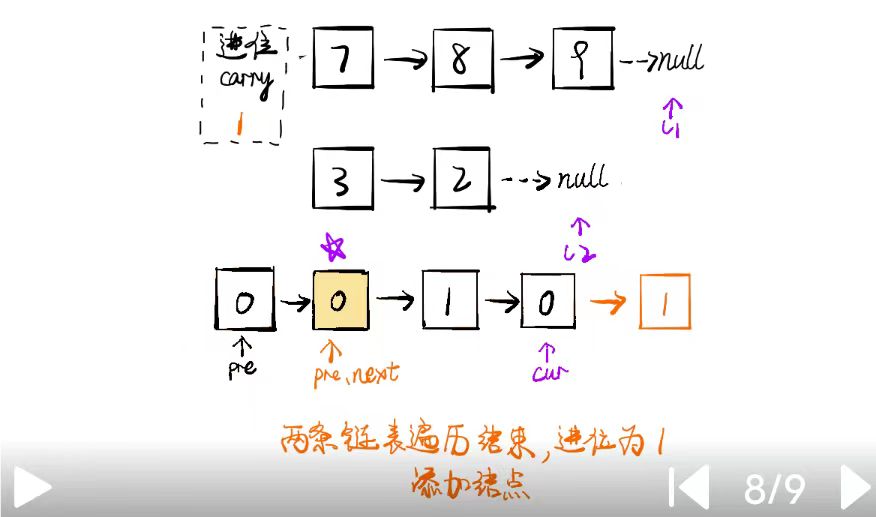 进位
carry
1
7 8 9 null
L1
3 2 null
L2
0 0 1 0 1
pre pre.next cur
两条链表遍历结束,进位为1
添加结点
8/9